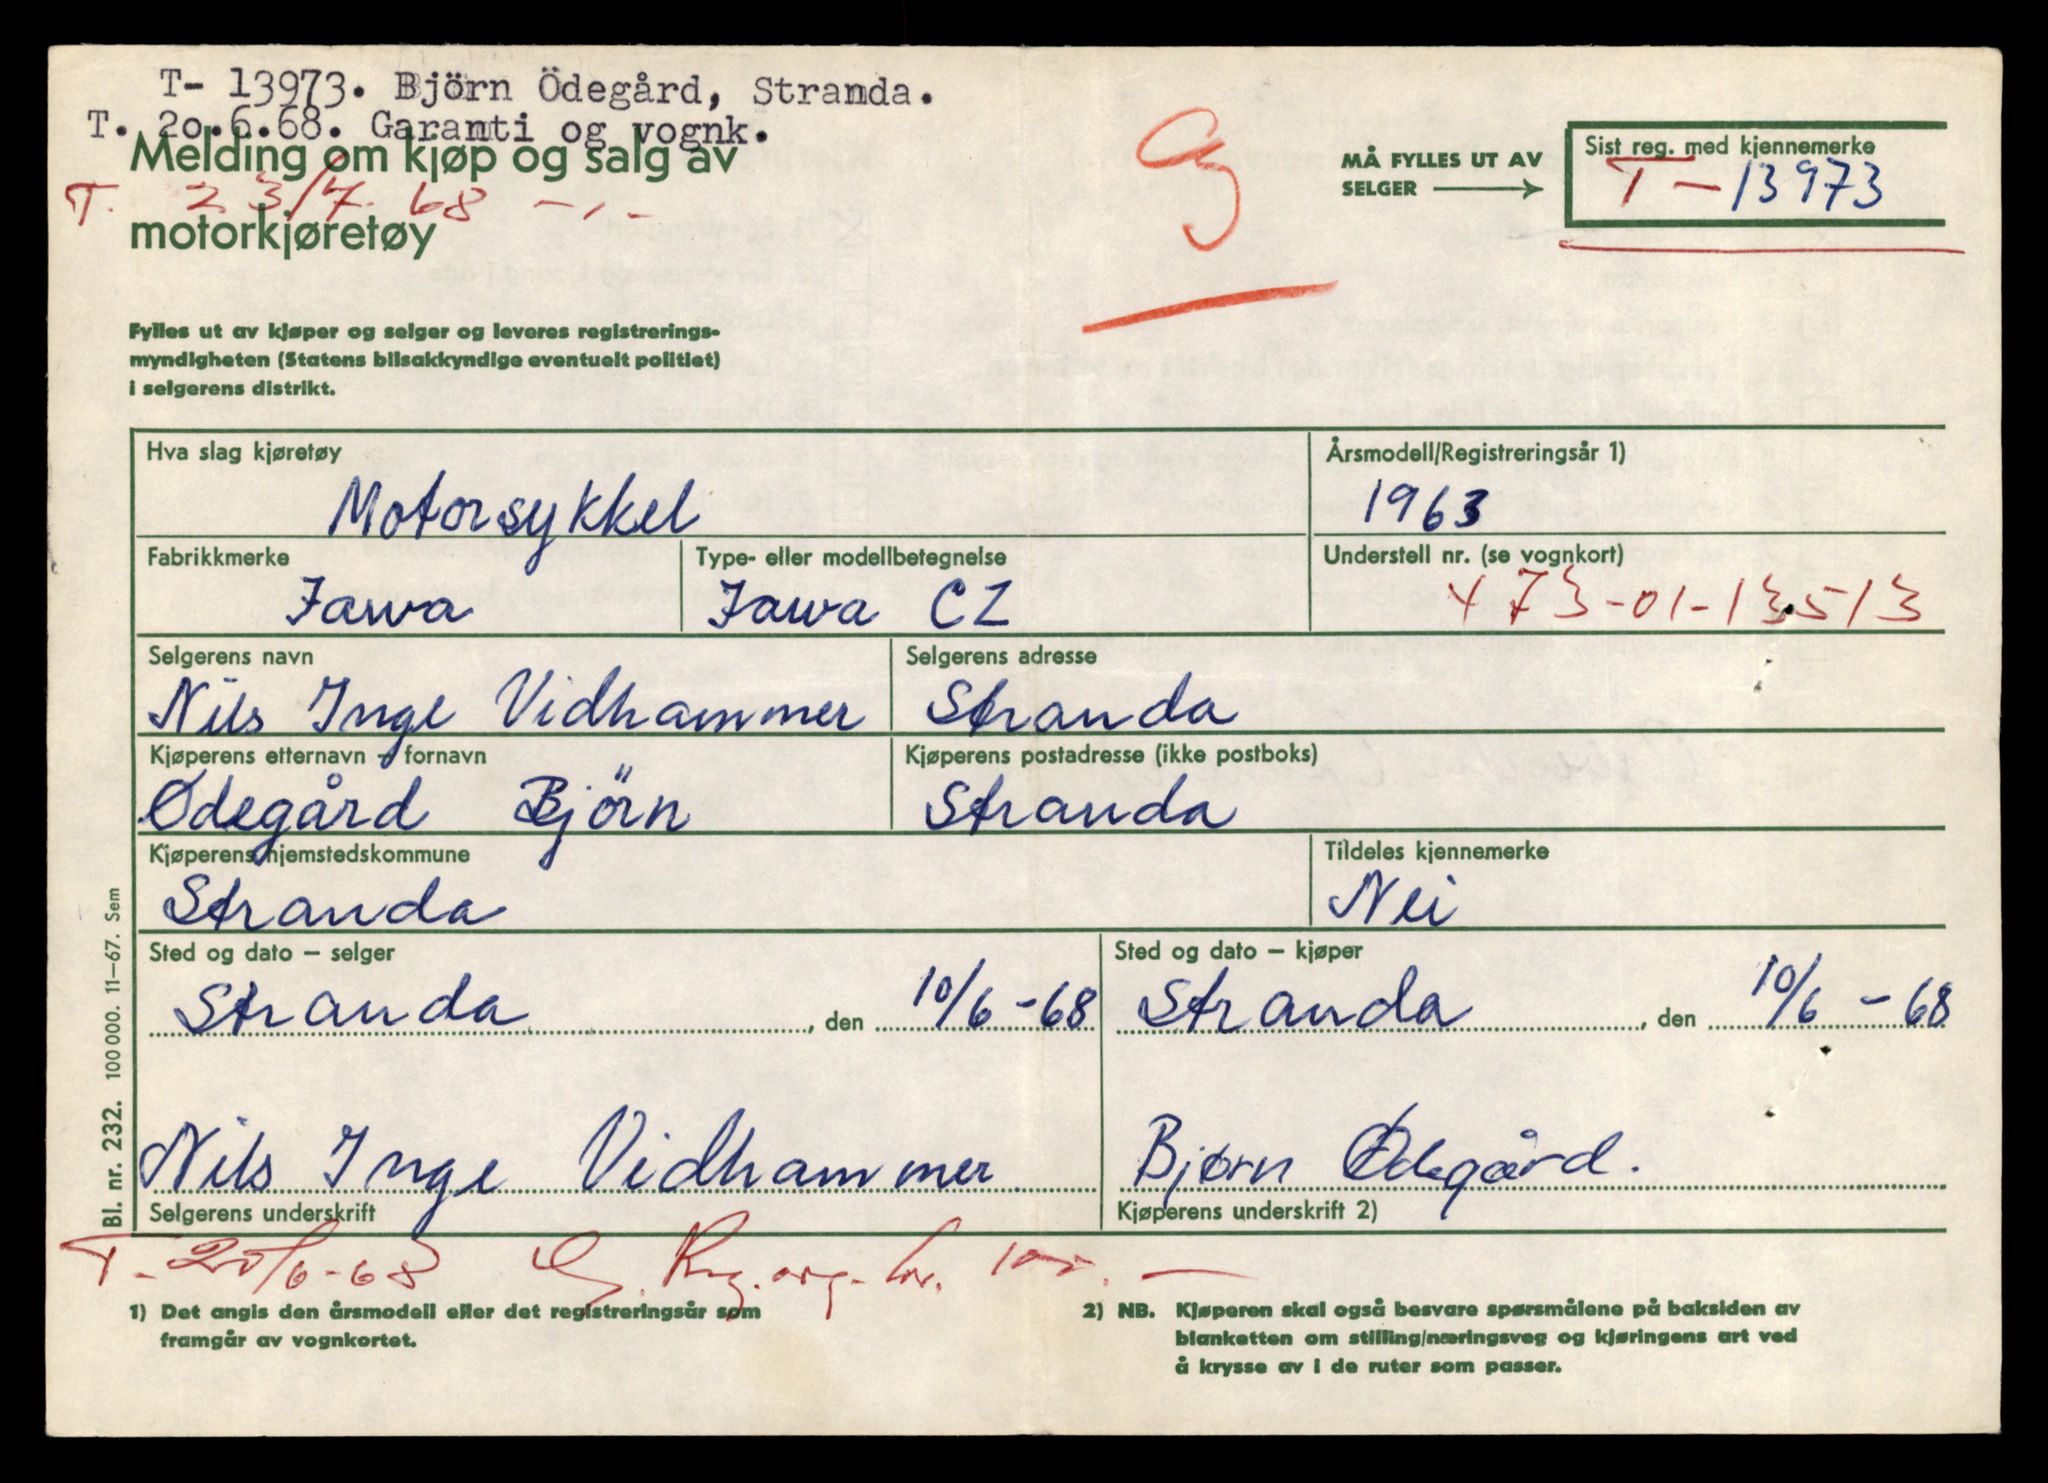 T- 13973. Björn Ödegård, Stranda.
T. 20.6.68. Garanti og vognk.
Melding om kjøp og salg av
T. 23/7. 68 -,-
motorkjøretøy
MÅ FYLLES UT AV
SELGER
Sist reg. med kjennemerke
T - 13973
Fylles ut av kjøper og selger og leveres registrerings-
myndigheten (Statens bilsakkyndige eventuelt politiet)
i selgerens distrikt.
Hva slag kjøretøy
Motorsykkel
Årsmodell/Registreringsår 1)
1963
Fabrikkmerke
Jawa
Type- eller modellbetegnelse
Jawa CZ
Understell nr. (se vognkort)
473-01-13513
Selgerens navn
Nils Inge Vidhammer
Selgerens adresse
Stranda
Kjøperens etternavn - fornavn
Ødegård Björn
Kjøperens postadresse (ikke postboks)
Stranda
Kjøperens hjemstedskommune
Stranda
Tildeles kjennemerke
Nei
Sted og dato – selger
Stranda, den 10/6 -68
Sted og dato – kjøper
Stranda, den 10/6 -68
Nils Inge Vidhammer
Selgerens underskrift
Bjørn Ødegård.
Kjøperens underskrift 2)
Bl. nr. 232. 100 000. 11—67. Sem
T- 20/6-68
1) Det angis den årsmodell eller det registreringsår som
framgår av vognkortet.
2) NB. Kjøperen skal også besvare spørsmålene på baksiden av
blanketten om stilling/næringsveg og kjøringens art ved
å krysse av i de ruter som passer.